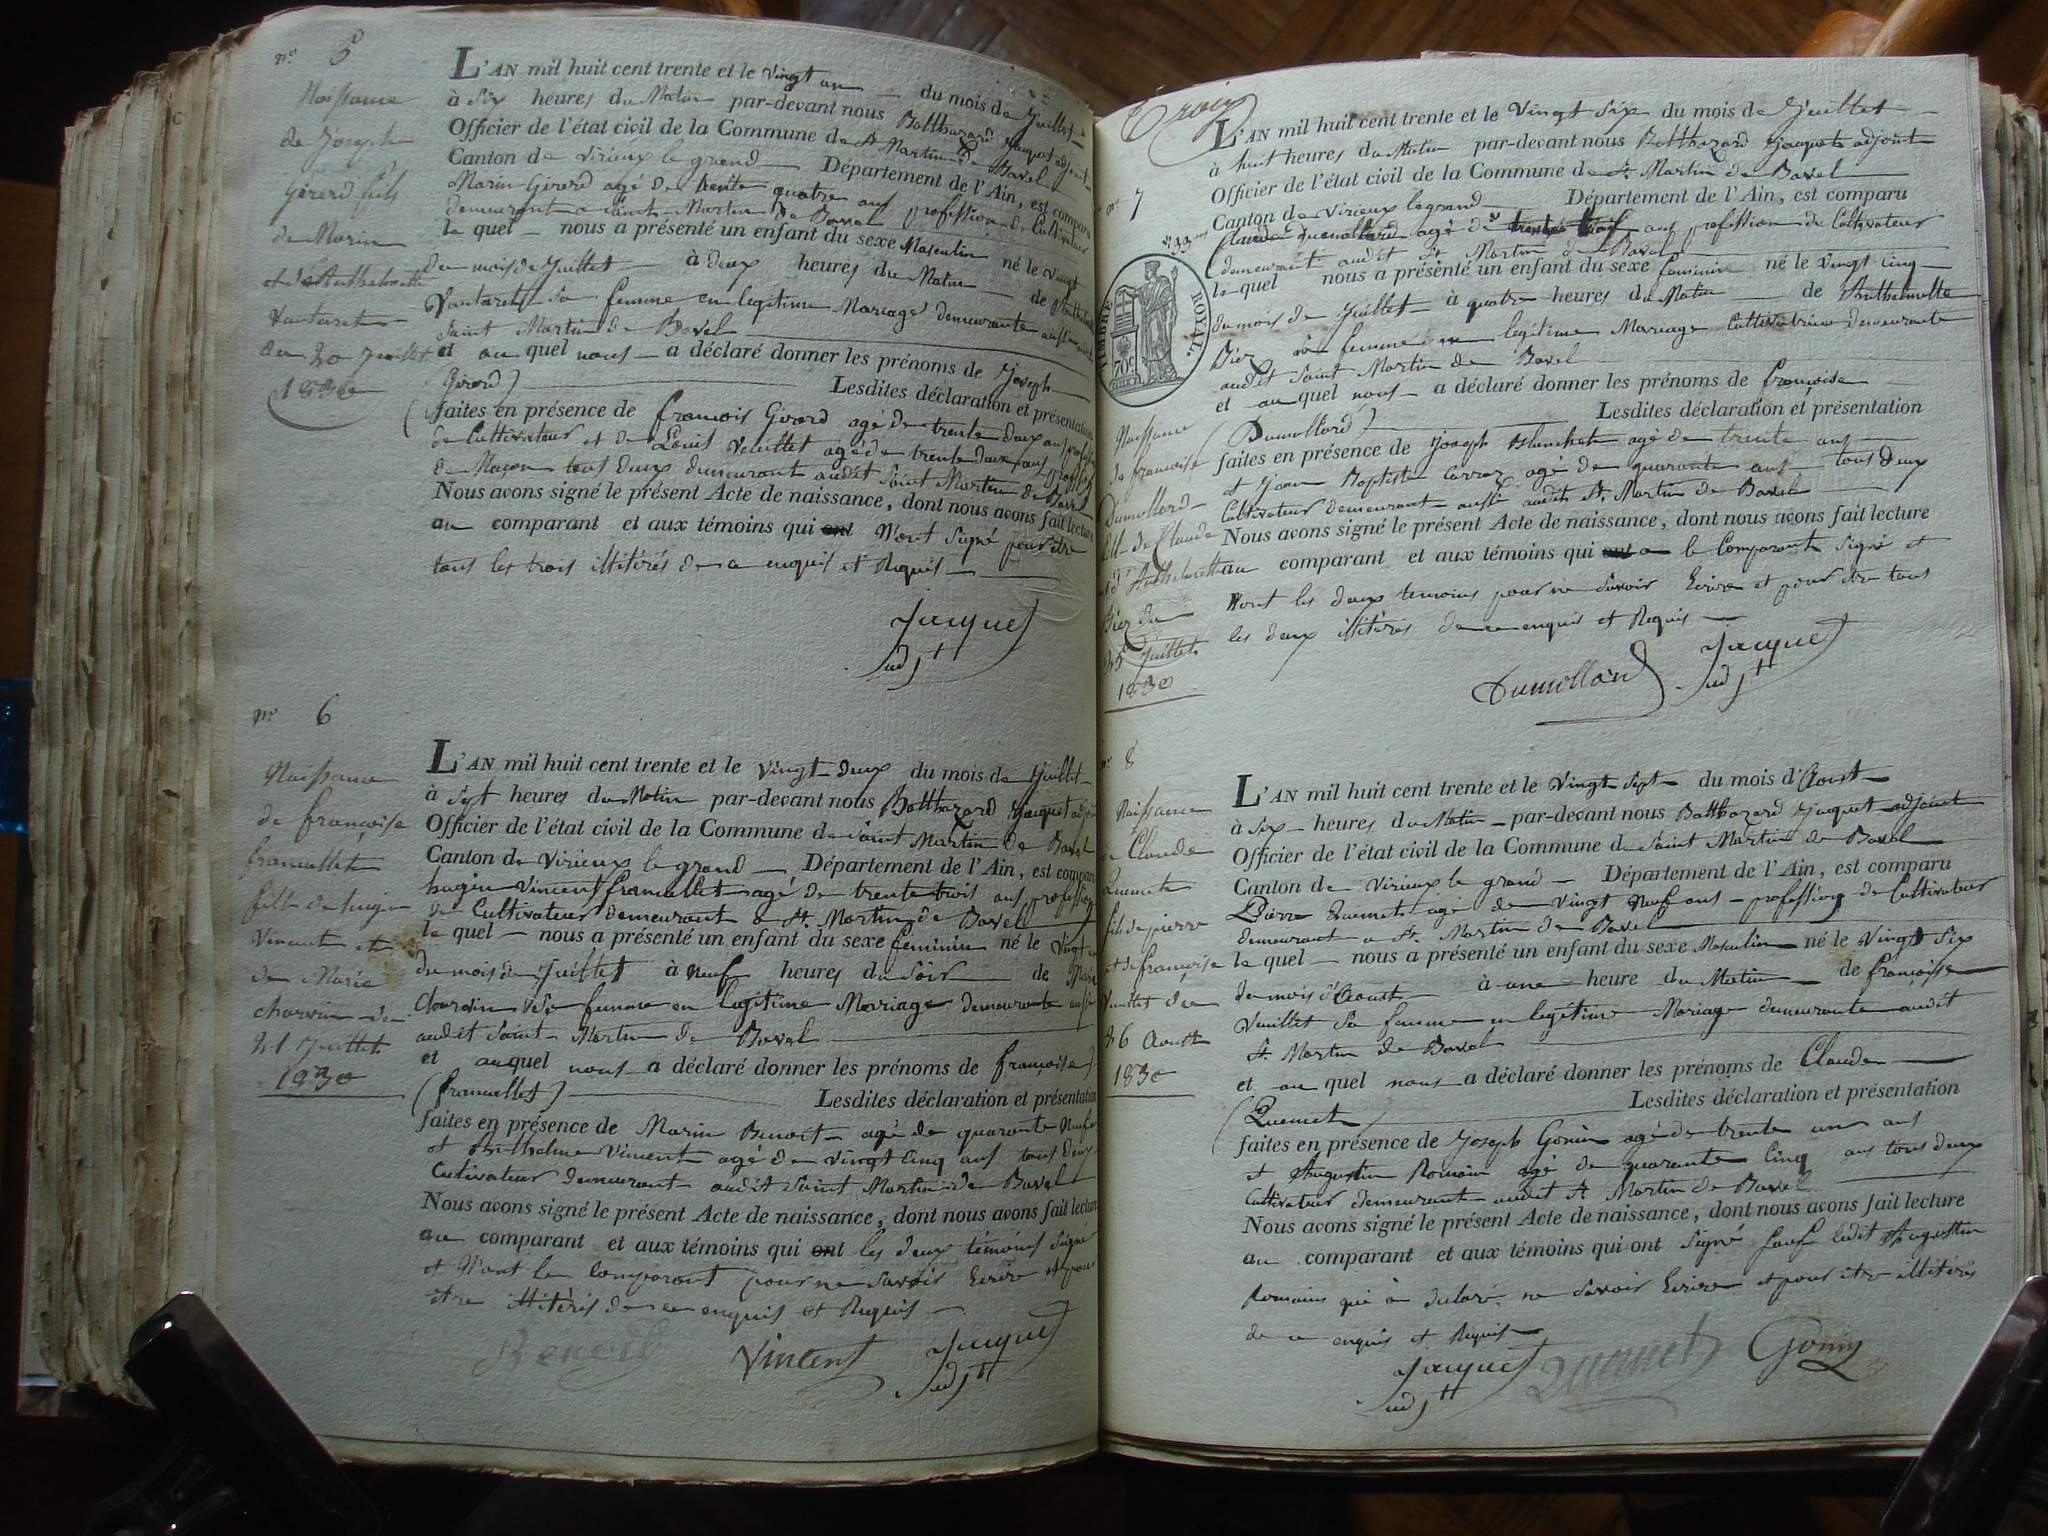 n.o 5
Naissance
de Joseph
Girerd fils
de Marin
et d'Anthelmette
Vautaret
du 20 Juillet
1830
L'AN mil huit cent trente et le vingt un du mois de Juillet
à Six heures du Matin par-devant nous Balthazard Jacquet adjoint
Officier de l'état civil de la Commune de St Martin de Bavel
Canton de Virieux le grand Département de l'Ain, est comparu
Marin Girerd agé de trente quatre ans profession de Cultivateur
demeurant a Saint Martin de Bavel
le quel nous a présenté un enfant du sexe Masculin né le vingt
du mois de Juillet à deux heures du Matin de
Vautaret sa femme en legitime Mariage demeurante aussi
Saint Martin de Bavel
et au quel nous a déclaré donner les prénoms de Joseph
(Girerd) Lesdites déclaration et présentation
faites en présence de francois Girerd agé de trente deux ans profession
de Cultivateur et de Louis Veuillet agé de trente deux ans profession
de Maçon tout deux demeurant audit Saint Martin de Bavel
Nous avons signé le présent Acte de naissance, dont nous avons fait lecture
au comparant et aux témoins qui ont N'ont Signé pour être
tous les trois illitérés de ce enquis et Requis
Jacquet
adjt
n.o 6
Naissance
de françoise
framollet
fille de hugin
Vincent et
de Marie
charvin du
21 Juillet
1830
L'AN mil huit cent trente et le vingt deux du mois de Juillet
à Sept heures du Matin par-devant nous Balthazard Jacquet adjoint
Officier de l'état civil de la Commune de Saint Martin de Bavel
Canton de Virieux le grand Département de l'Ain, est comparu
hugin Vincent framollet agé de trente trois ans profession
de Cultivateur demeurant a St. Martin de Bavel
le quel nous a présenté un enfant du sexe feminin né le vingt
du mois de Juillet à Neuf heures du Soir de Marie
Charvin sa femme en legitime Mariage demeurante aussi
audit Saint Martin de Bavel
et auquel nous a déclaré donner les prénoms de françoise
(framollet) Lesdites déclaration et présentation
faites en présence de Marin Benoit agé de quarante Neuf
et Anthelme Vincent agé de vingt cinq ans tous deux
Cultivateur demeurant audit Saint Martin de Bavel
Nous avons signé le présent Acte de naissance, dont nous avons fait lecture
au comparant et aux témoins qui ont les deux témoins Signé
et N'ont le Comparant pour ne Savoir Ecrire et pour
être illitérés de ce enquis et Requis
Benoit Vincent Jacquet
adjt
Trois
n.o 7
TIMBRE ROYAL.
70c
Naissance
de françoise
Dumollard
fille de Claude
et d'Anthelmette
Biez du
25 Juillet
1830
L'AN mil huit cent trente et le Vingt Six du mois de Juillet
à huit heures du Matin par-devant nous Balthazard Jacquet adjoint
Officier de l'état civil de la Commune de St. Martin de Bavel
Canton de Virieux legrand Département de l'Ain, est comparu
Claude Dumollard agé de ans profession de Cultivateur
demeurant audit St Martin de Bavel
le quel nous a présenté un enfant du sexe feminin né le vingt cinq
du mois de Juillet à quatre heures du Matin de Anthelmette
Biez sa femme en legitime Mariage Cultivatrice demeurante
audit Saint Martin de Bavel
et au quel nous a déclaré donner les prénoms de françoise
(Dumollard) Lesdites déclaration et présentation
faites en présence de Joseph Blanchet agé de trente ans
et Jean Baptiste Carraz agé de quarante ans tous deux
Cultivateur demeurant aussi audit St. Martin de Bavel
Nous avons signé le présent Acte de naissance, dont nous avons fait lecture
au comparant et aux témoins qui ont a le Comparant Signé et
Nont les deux temoins pour ne Savoir Ecrire et pour être tous
les deux illitérés de ce enquis et Requis
Dumollard Jacquet
adjt
n.o 8
Naissance
de Claude
Quenet
fils de pierre
et de françoise
Veuillet du
26 Aoust
1830
L'AN mil huit cent trente et le Vingt Sept du mois d'Aoust
à Six heures du Matin par-devant nous Balthazard Jacquet adjoint
Officier de l'état civil de la Commune de Saint Martin de Bavel
Canton de Virieux le grand Département de l'Ain, est comparu
Pierre Quenet agé de Vingt Neuf ans profession de Cultivateur
demeurant a St. Martin de Bavel
le quel nous a présenté un enfant du sexe Masculin né le Vingt Six
du mois d'Aoust à une heure du Matin de françoise
Veuillet Sa femme en legitime Mariage demeurante audit
St. Martin de Bavel
et au quel nous a déclaré donner les prénoms de Claude
(Quenet Lesdites déclaration et présentation
faites en présence de Joseph Gonin agé de trente un ans
et Augustin Romain agé de quarante Cinq ans tous deux
Cultivateur demeurant audit St Martin de Bavel
Nous avons signé le présent Acte de naissance, dont nous avons fait lecture
au comparant et aux témoins qui ont Signé Sauf ledit Augustin
Romain qui a declaré ne Savoir Ecrire et pour être illitérés
de ce enquis et Requis
Jacquet Quenet Gonin
adjt